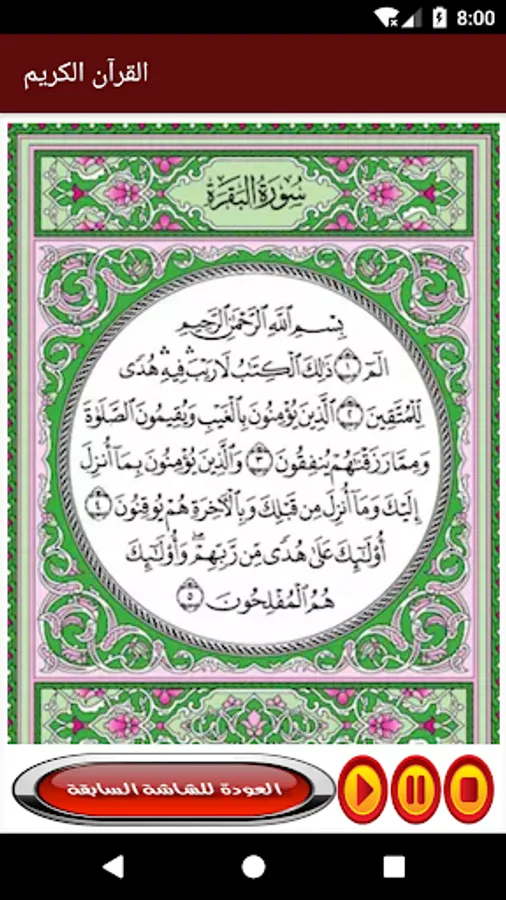 8:00
القرآن الكريم
سُورَةُ البَقَرَةِ
بِسْمِ ٱللَّهِ ٱلرَّحْمَٰنِ ٱلرَّحِيمِ
الٓمٓ ١ ذَٰلِكَ ٱلْكِتَٰبُ لَا رَيْبَ ۛ فِيهِ ۛ هُدًى
لِّلْمُتَّقِينَ ٢ ٱلَّذِينَ يُؤْمِنُونَ بِٱلْغَيْبِ وَيُقِيمُونَ ٱلصَّلَوٰةَ
وَمِمَّا رَزَقْنَٰهُمْ يُنفِقُونَ ٣ وَٱلَّذِينَ يُؤْمِنُونَ بِمَآ أُنزِلَ
إِلَيْكَ وَمَآ أُنزِلَ مِن قَبْلِكَ وَبِٱلْءَاخِرَةِ هُمْ يُوقِنُونَ ٤
أُو۟لَٰٓئِكَ عَلَىٰ هُدًى مِّن رَّبِّهِمْ ۖ وَأُو۟لَٰٓئِكَ
هُمُ ٱلْمُفْلِحُونَ ٥
العودة للشاشة السابقة